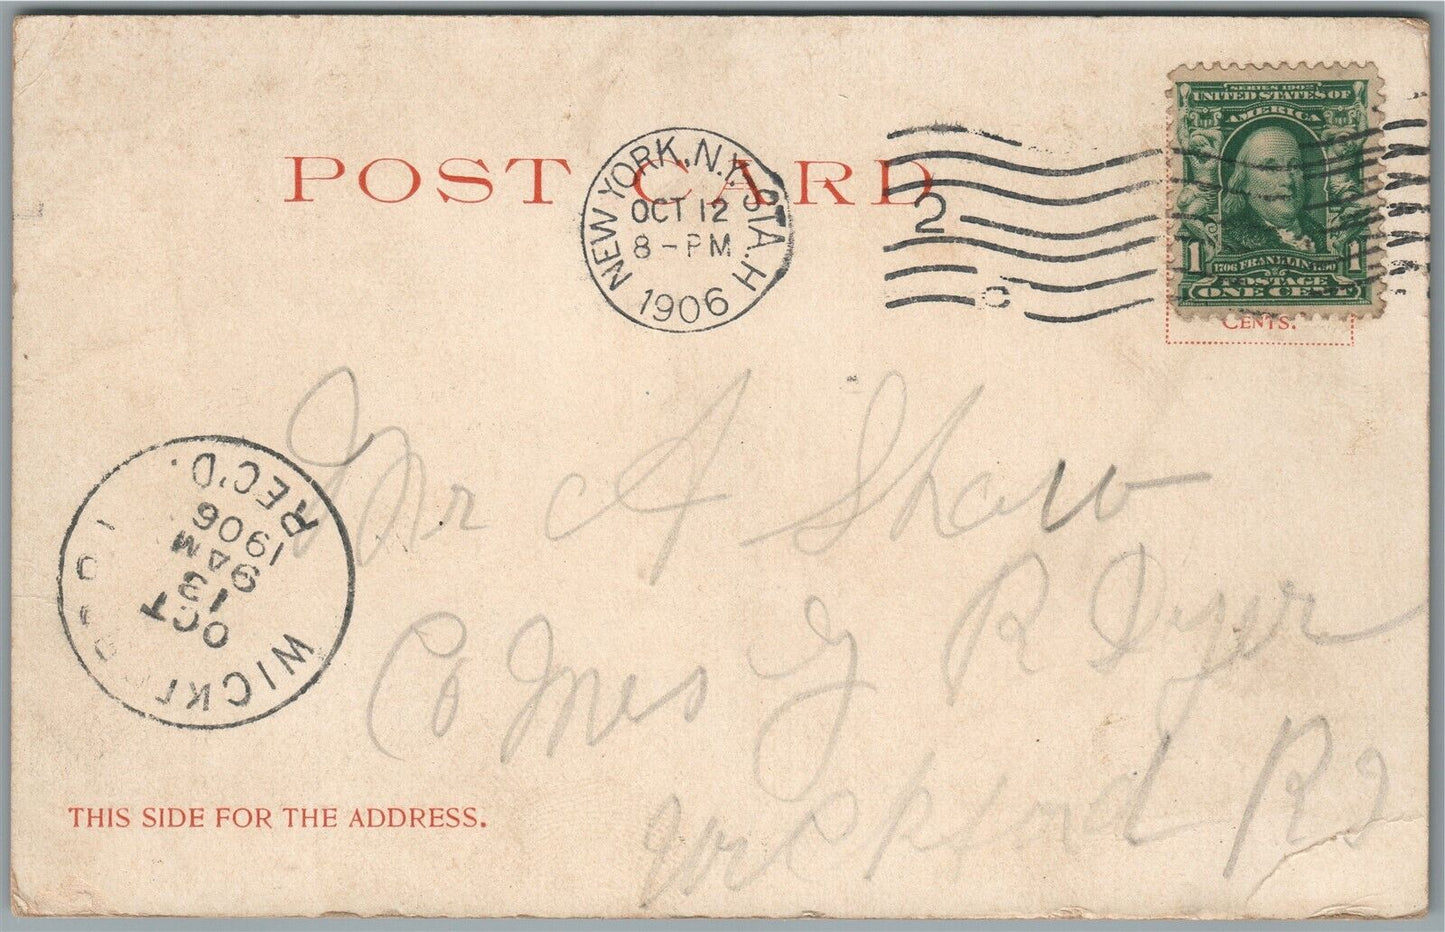 POST CARD
NEW YORK, N.Y. STA. H
OCT 12
8-PM
1906
2
C
SERIES 1902
UNITED STATES OF
AMERICA
1 1706 FRANKLIN 1790 1
POSTAGE
ONE CENT
CENTS.
Mr A Shaw
Co Mrs G R Dyer
Wickford R I
REC'D.
1906
9 AM
OCT 13
WICKF R.I.
THIS SIDE FOR THE ADDRESS.